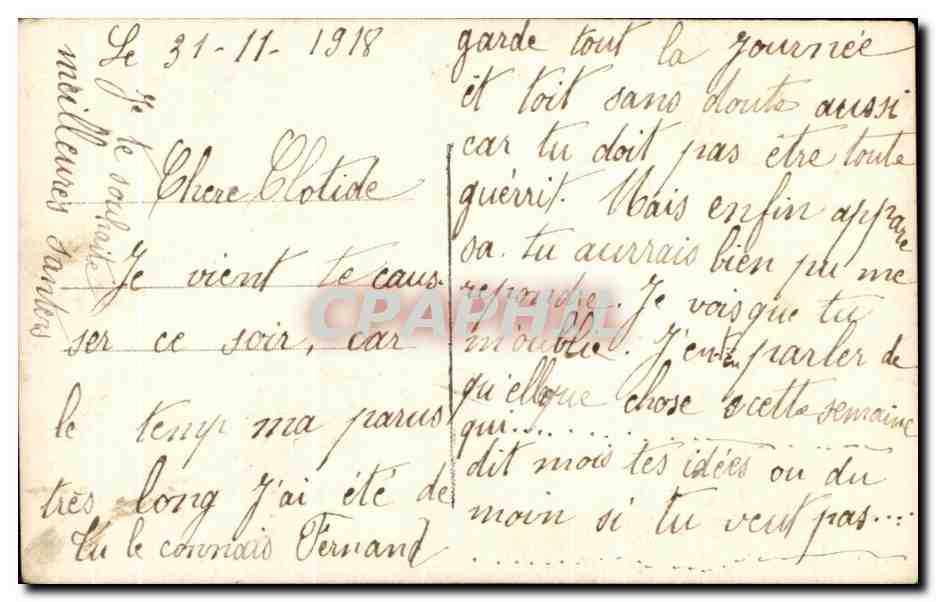 Le 31-11-1918
Chere Clotide
Je vient te caus-
ser ce soir, car
le temp ma parus
très long J'ai été de
garde tout la journée
et toit sans doute aussi
car tu doit pas être toute
guérrit. Mais enfin appare
sa. tu aurrais bien pu me
repondre. Je vois que tu
m'oublie. J'en parler de
qu'elleque chose cette semaine
qui.............
dit mois tes idées ou du
moin si tu veut pas....
Tu le connais Fernand
Je te souhaite
meilleures santers
CPAPHIL